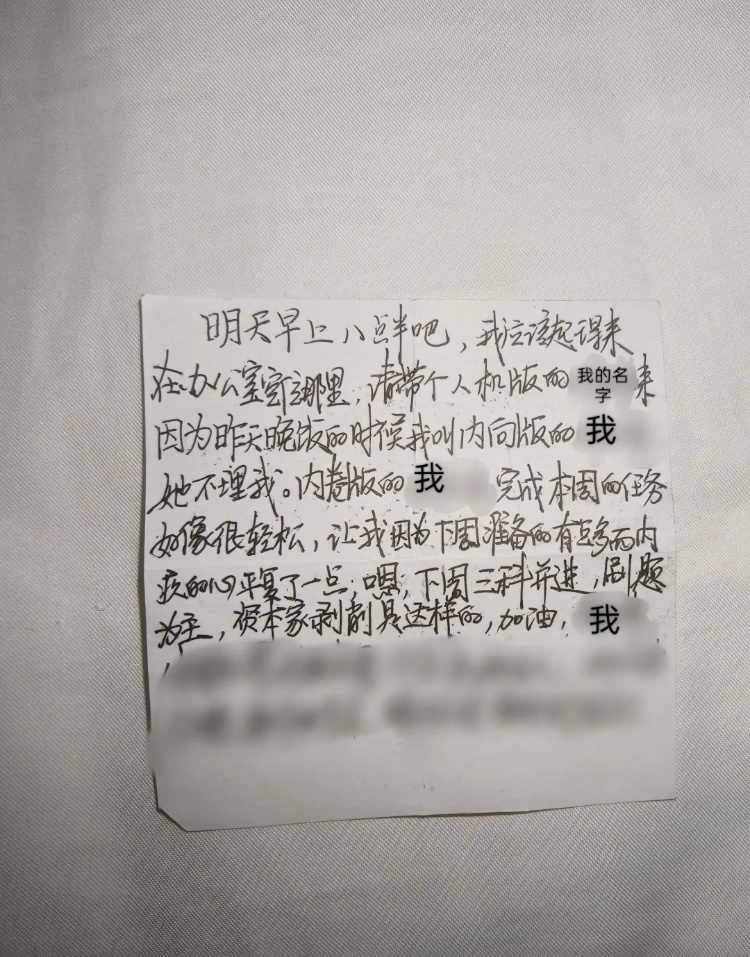 明天早上八点半吧，我应该起得来
在办公室窗那里，请带个人机版的我的名字来
因为昨天晚饭的时候我叫内向版的我
她不理我。内卷版的我完成本周的任务
好像很轻松，让我因为下周准备的有点多而内
疚的心平复了一点，嗯，下周三科并进，刷题
为主，资本家剥削是这样的，加油，我